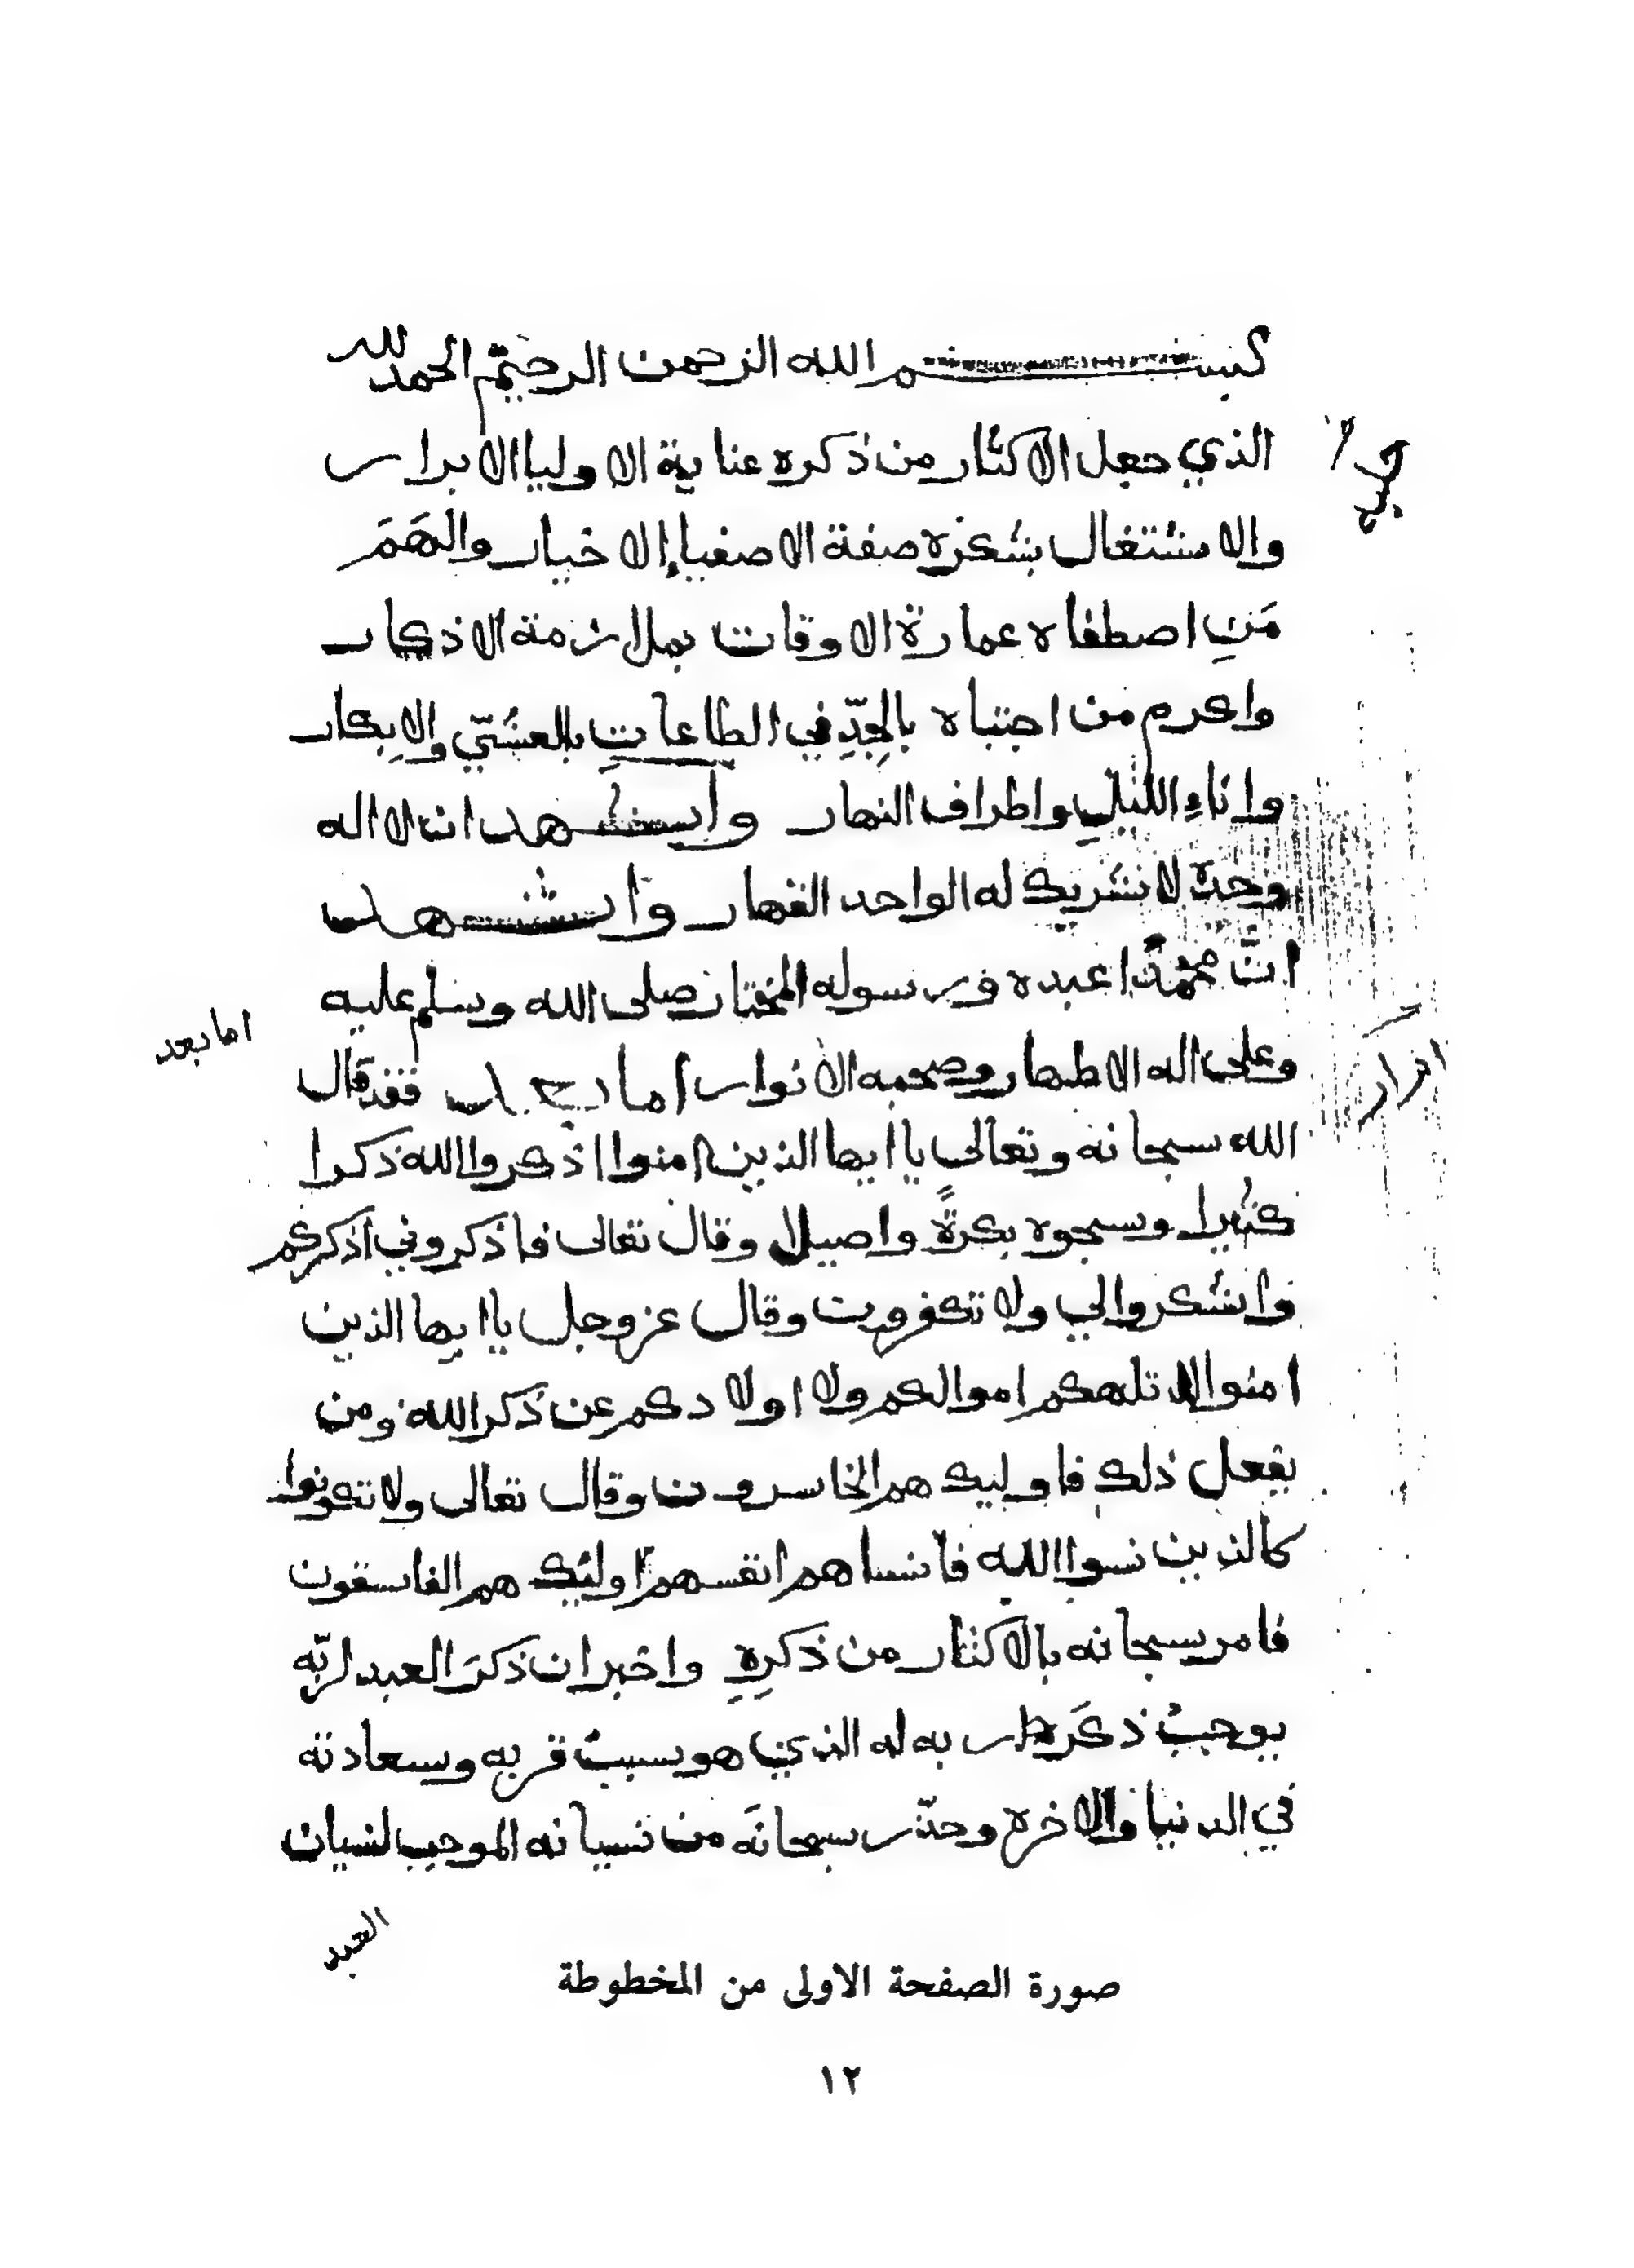 بسم الله الرحمن الرحيم الحمد لله
الذي جعل الاكثار من ذكره عناية الاوليا الابرار
والاشتغال بشكره صفة الاصفيا الاخيار والهَمَ
مَنِ اصطفاه عمارة الاوقات بملازمة الاذكار
واكرم من اجتباه بالجِدِّ في الطاعاتِ بالعشيّ والابكار
واناءِ الليلِ واطراف النهار واشهد ان لا اله
وحده لا شريك له الواحد القهار واشهد
انَّ محمدًا عبده ورسوله المختار صلى الله وسلم عليه
اما بعد
وعلى اله الاطهار وصحبه الانوار اما بعد فقد قال
الله سبحانه وتعالى يا ايها الذين امنوا اذكروا الله ذكرا
كثيرا وسبحوه بكرةً واصيلا وقال تعالى فاذكروني اذكركم
واشكروا لي ولا تكفرون وقال عز وجل يا ايها الذين
امنوا لا تلهكم اموالكم ولا اولادكم عن ذكر الله ومن
يفعل ذلك فاوليك هم الخاسرون وقال تعالى ولا تكونوا
كالذين نسوا الله فانساهم انفسهم اولئك هم الفاسقون
فامر سبحانه بالاكثار من ذكرهِ واخبر ان ذكرَ العبد لربّه
يوجبُ ذكرَ ربه له الذي هو سبب قربه وسعادته
في الدنيا والاخره وحذّر سبحانَه من نسيانه الموجب لنسيان
العبد
صورة الصفحة الاولى من المخطوطة
١٢